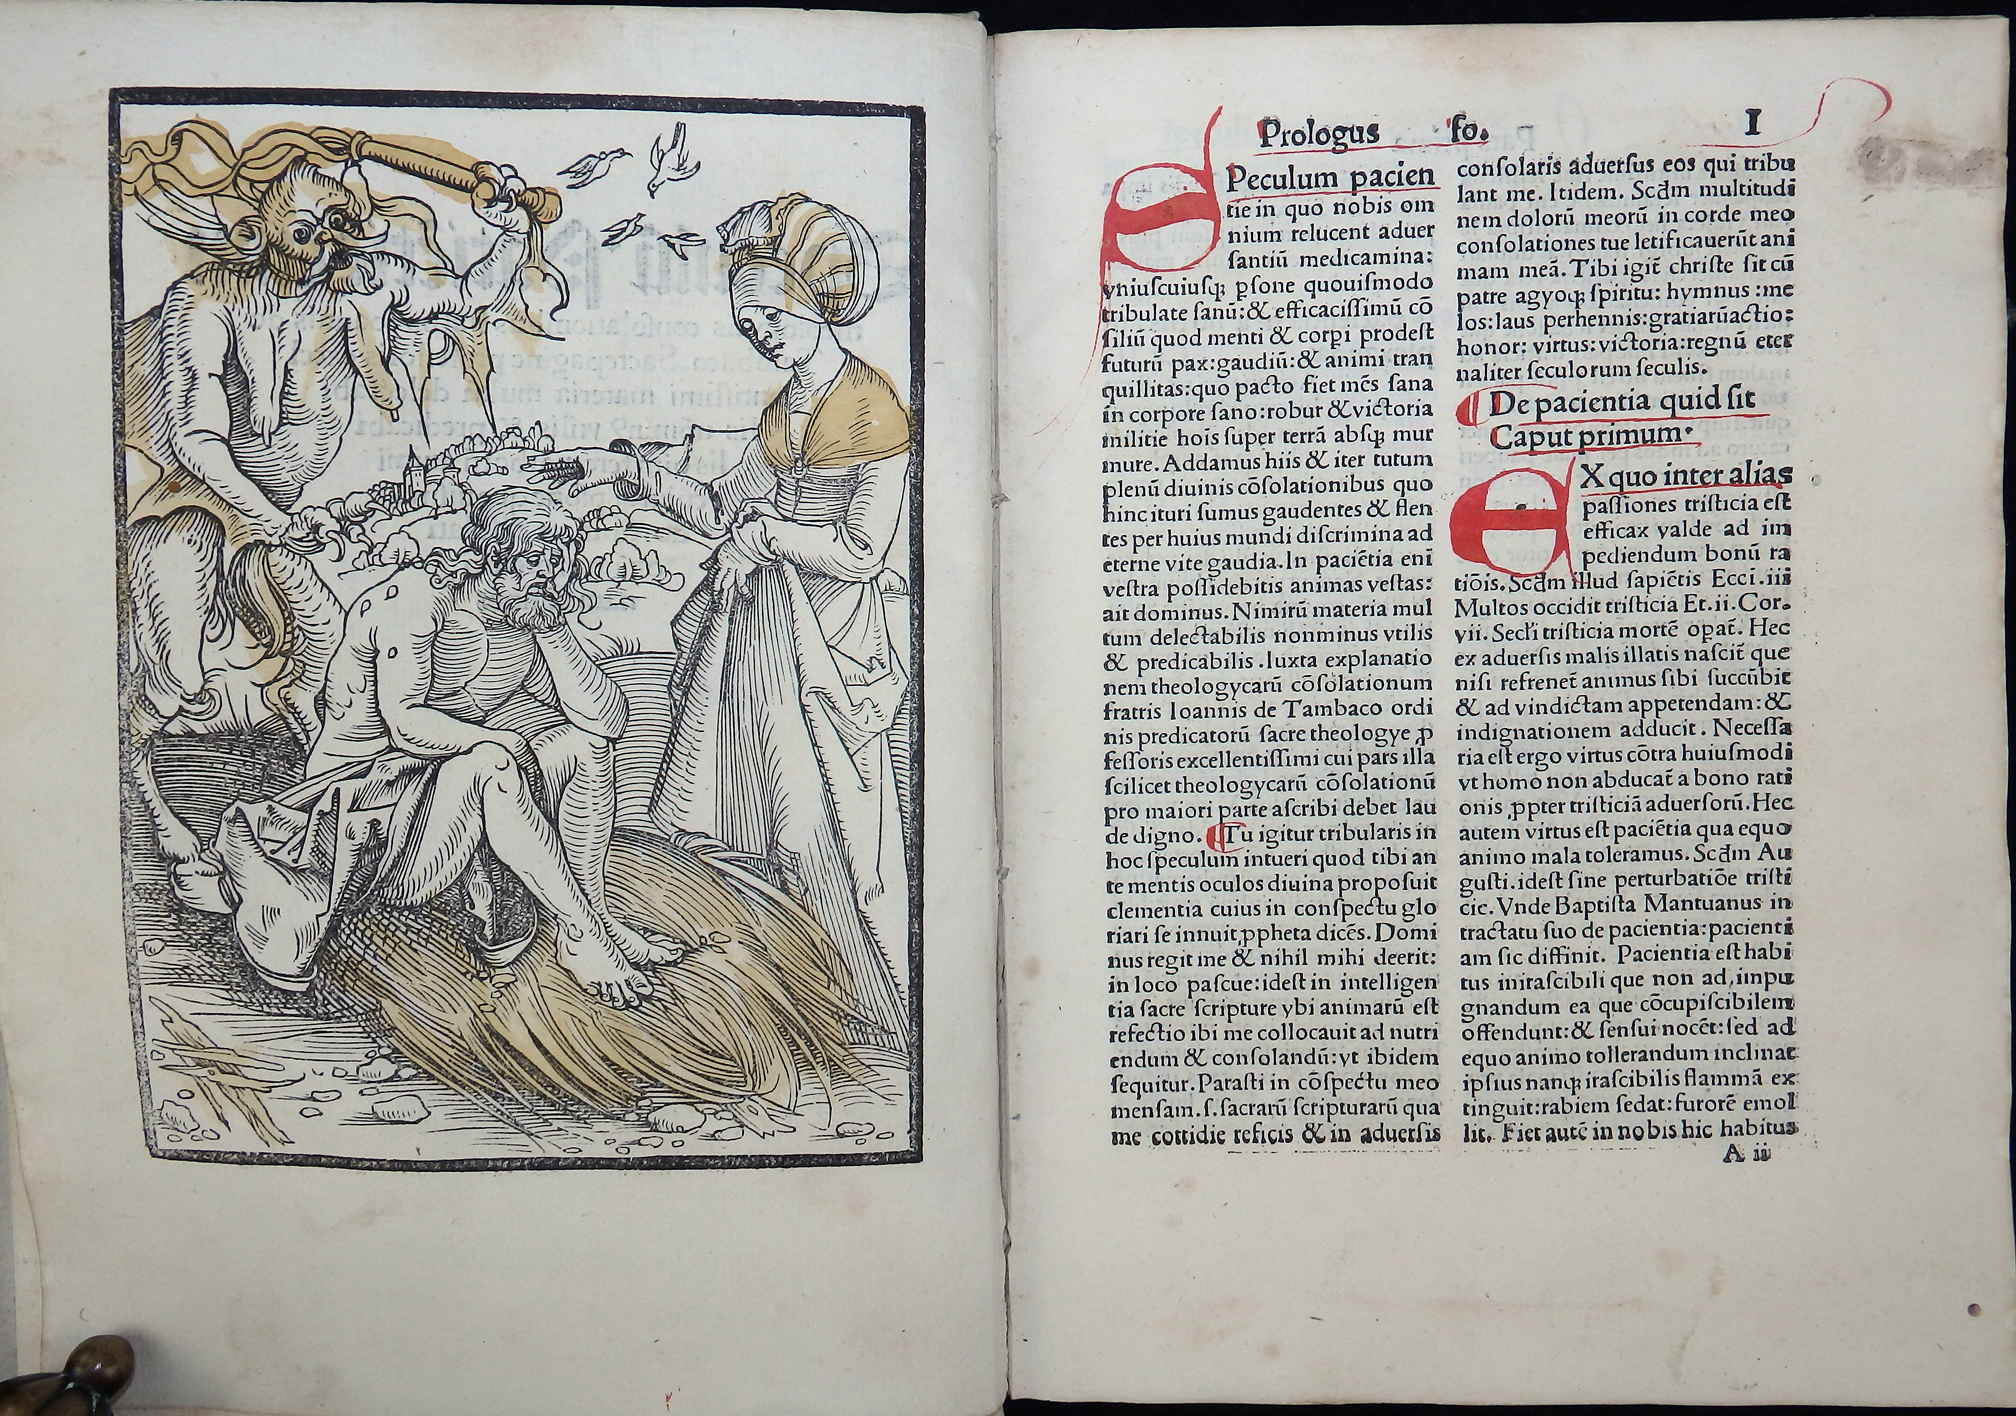 Prologus fo. I
SPeculum pacien
tie in quo nobis om
nium relucent aduer
ſantiũ medicamina:
vniuſcuiuſqꝫ ꝑſone quouiſmodo
tribulate ſanũ:& efficaciſſimũ cõ
ſiliũ quod menti & corpi prodeſt
futurũ pax:gaudiũ:& animi tran
quillitas:quo pacto fiet mẽs ſana
in corpore ſano:robur & victoria
militie hoĩs ſuper terrã abſqꝫ mur
mure. Addamus hiis & iter tutum
plenũ diuinis cõſolationibus quo
hinc ituri ſumus gaudentes & flen
tes per huius mundi diſcrimina ad
eterne vite gaudia. In paciẽtia eni
veſtra poſſidebitis animas veſtas:
ait dominus. Nimirũ materia mul
tum delectabilis nonminus vtilis
& predicabilis . Iuxta explanatio
nem theologycarũ cõſolationum
fratris Ioannis de Tambaco ordi
nis predicatorũ ſacre theologye ꝓ
feſſoris excellentiſſimi cui pars illa
ſcilicet theologycarũ cõſolationũ
pro maiori parte aſcribi debet lau
de digno. ¶Tu igitur tribularis in
hoc ſpeculum intueri quod tibi an
te mentis oculos diuina propoſuit
clementia cuius in conſpectu glo
riari ſe innuit ꝓpheta dicẽs. Domi
nus regit me & nihil mihi deerit:
in loco paſcue:ideſt in intelligen
tia ſacre ſcripture vbi animarũ eſt
refectio ibi me collocauit ad nutri
endum & conſolandũ:vt ibidem
ſequitur. Paraſti in cõſpectu meo
menſam. ſ. ſacrarũ ſcripturarũ qua
me cottidie reficis & in aduerſis
conſolaris aduerſus eos qui tribu
lant me. Itidem. Scd̃m multitudi
nem dolorũ meorũ in corde meo
conſolationes tue letificauerũt ani
mam meã. Tibi igit̃ chriſte ſit cũ
patre agyoqꝫ ſpiritu: hymnus :me
los:laus perhennis:gratiarũactio:
honor: virtus:victoria:regnũ eter
naliter ſeculorum ſeculis.
¶ De pacientia quid ſit
Caput primum.
EX quo inter alias
paſſiones triſticia eſt
efficax valde ad im
pediendum bonũ ra
tiõis. Scd̃m illud ſapiẽtis Ecci. iii
Multos occidit triſticia Et. ii. Cor.
vii. Secłi triſticia mortẽ opat̃. Hec
ex aduerſis malis illatis naſcit̃ que
niſi refrenet̃ animus ſibi ſuccũbit
& ad vindictam appetendam:&
indignationem adducit . Neceſſa
ria eſt ergo virtus cõtra huiuſmodi
vt homo non abducat̃ a bono rati
onis ꝓpter triſticiã aduerſorũ. Hec
autem virtus eſt paciẽtia qua equo
animo mala toleramus. Scd̃m Au
guſti. ideſt ſine perturbatiõe triſti
cie. Vnde Baptiſta Mantuanus in
tractatu ſuo de pacientia: pacienti
am ſic diffinit. Pacientia eſt habi
tus iniraſcibili que non ad, impu
gnandum ea que cõcupiſcibilem
offendunt:& ſenſui nocẽt:ſed ad
equo animo tollerandum inclinat
ipſius nanqꝫ iraſcibilis flammã ex
tinguit:rabiem ſedat:furorẽ emol
lit. Fiet autẽ in nobis hic habitus
A ii